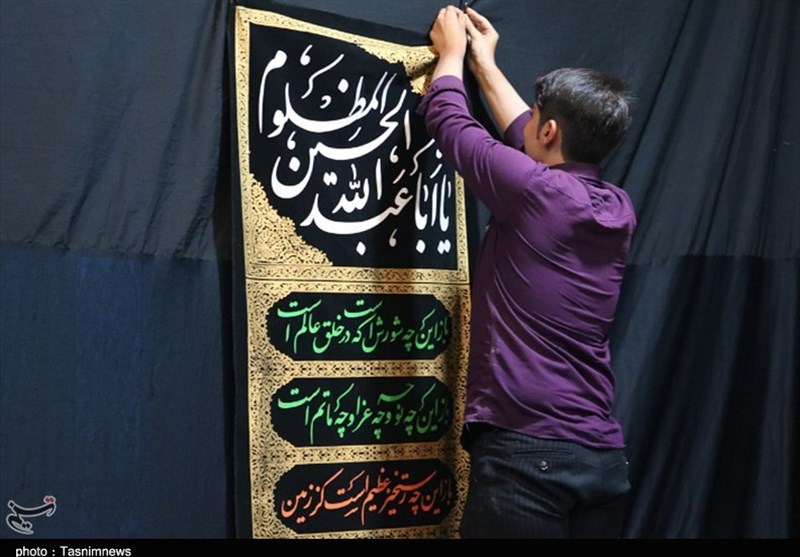 یا أبا عبدالله
الحسین
المظلوم
باز این چه شورش است که در خلق عالم است
باز این چه نوحه و چه عزا و چه ماتم است
باز این چه رستخیز عظیم است کز زمین
تسنیم
photo : Tasnimnews